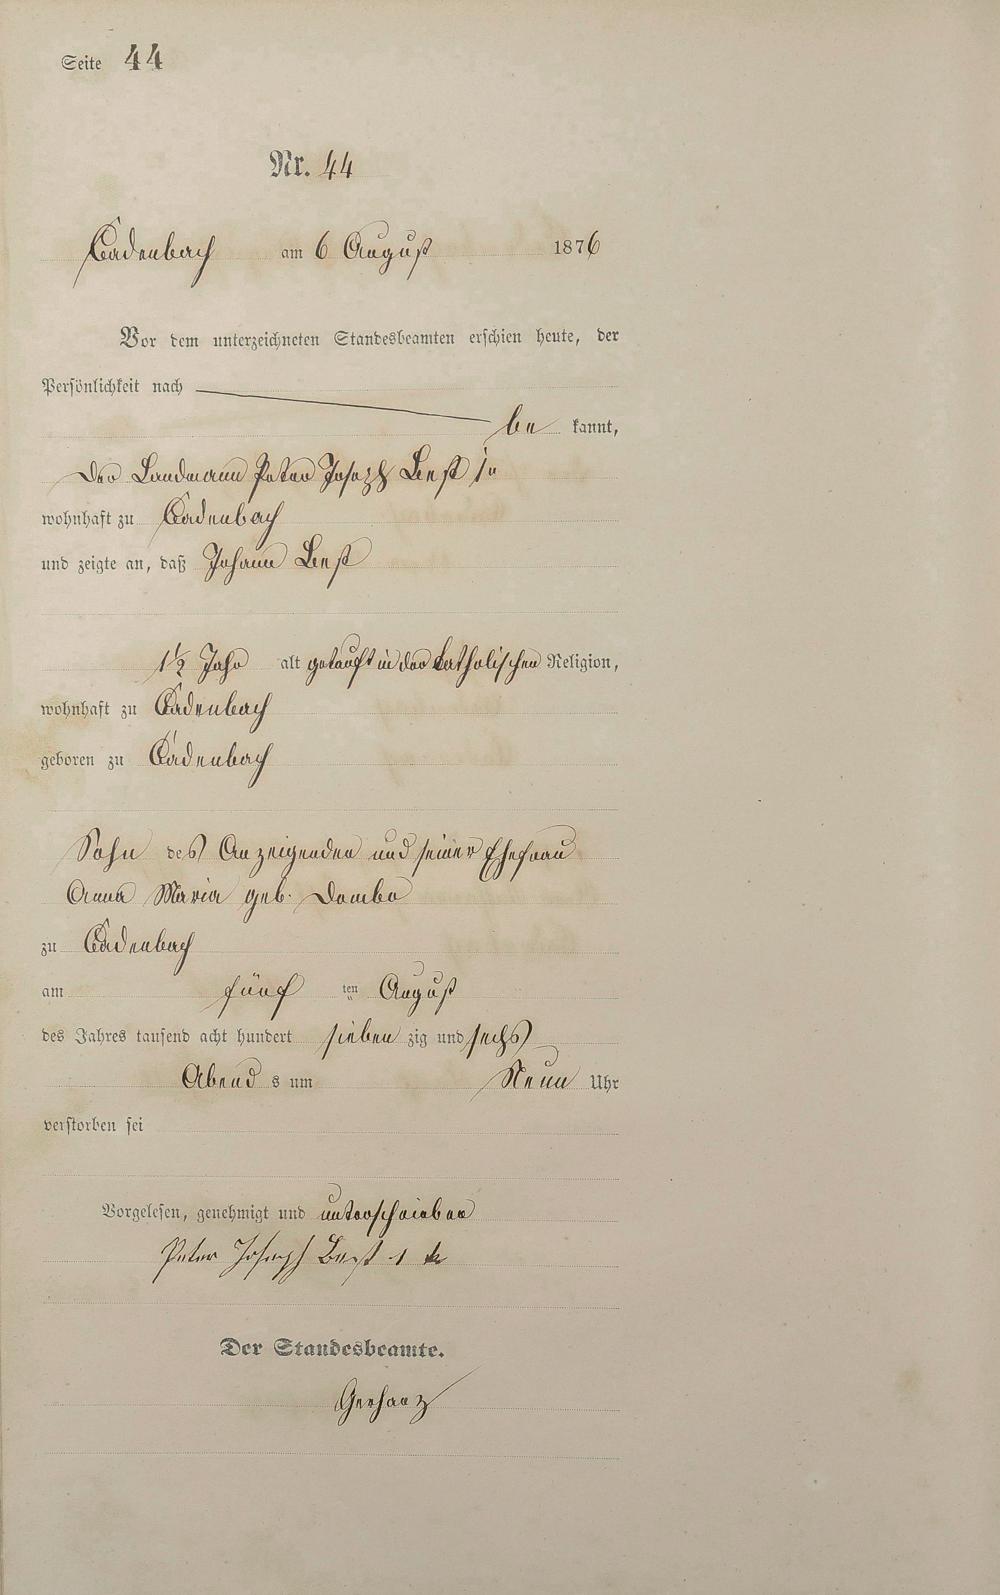 Seite 44
Nr. 44
Cadenbach am 6 August 1876
Vor dem unterzeichneten Standesbeamten erschien heute, der
Persönlichkeit nach
be kannt,
der Landmann Peter Joseph Best
wohnhaft zu Cadenbach
und zeigte an, daß Johann Best
1½ Jahr alt getauft in der katholischen Religion,
wohnhaft zu Cadenbach
geboren zu Cadenbach
Sohn des Anzeigenden und seiner Ehefrau
Anna Maria geb. Dombo
zu Cadenbach
am fünf ten August
des Jahres tausend acht hundert sieben zig und sechs
Abend s um Neun Uhr
verstorben sei
Vorgelesen, genehmigt und unterschrieben
Peter Joseph Best
Der Standesbeamte.
Gerharz